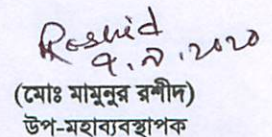 Roshid
৭.৯.২০২০
(মোঃ মামুনুর রশীদ)
উপ-মহাব্যবস্থাপক